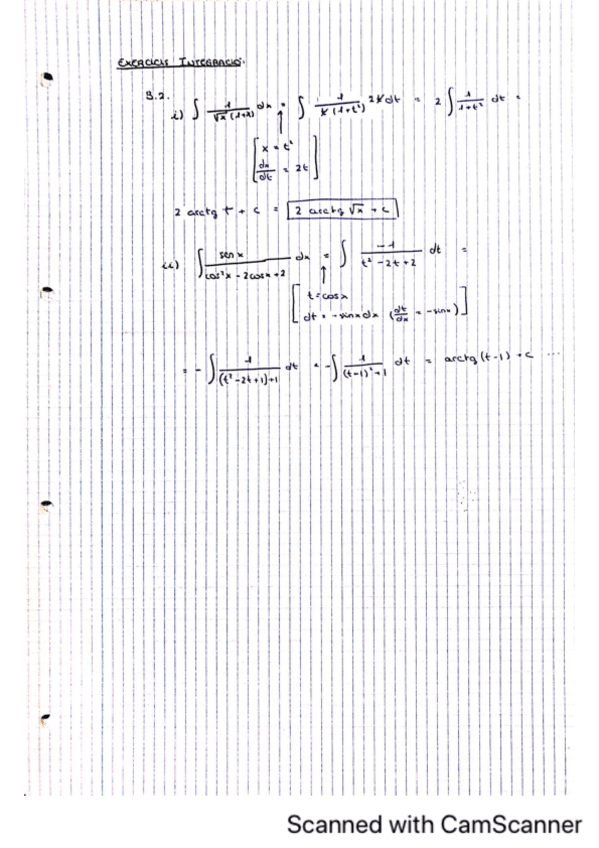 EXERCICIS INTEGRACIÓ.
3.2.
i) ∫ 1/(√x (1+x)) dx = ∫ 1/(t (1+t²)) 2t dt = 2 ∫ 1/(1+t²) dt =
↑
[ x = t²
dx/dt = 2t ]
2 arctg t + c = 2 arctg √x + c
ii) ∫ sen x/(cos²x - 2cosx + 2) dx = ∫ -1/(t² - 2t + 2) dt =
↑
[ t = cosx
dt = -sinx dx (dt/dx = -sinx) ]
= - ∫ 1/((t² - 2t + 1) + 1) dt = - ∫ 1/((t-1)² + 1) dt = arctg (t-1) + c ...
Scanned with CamScanner